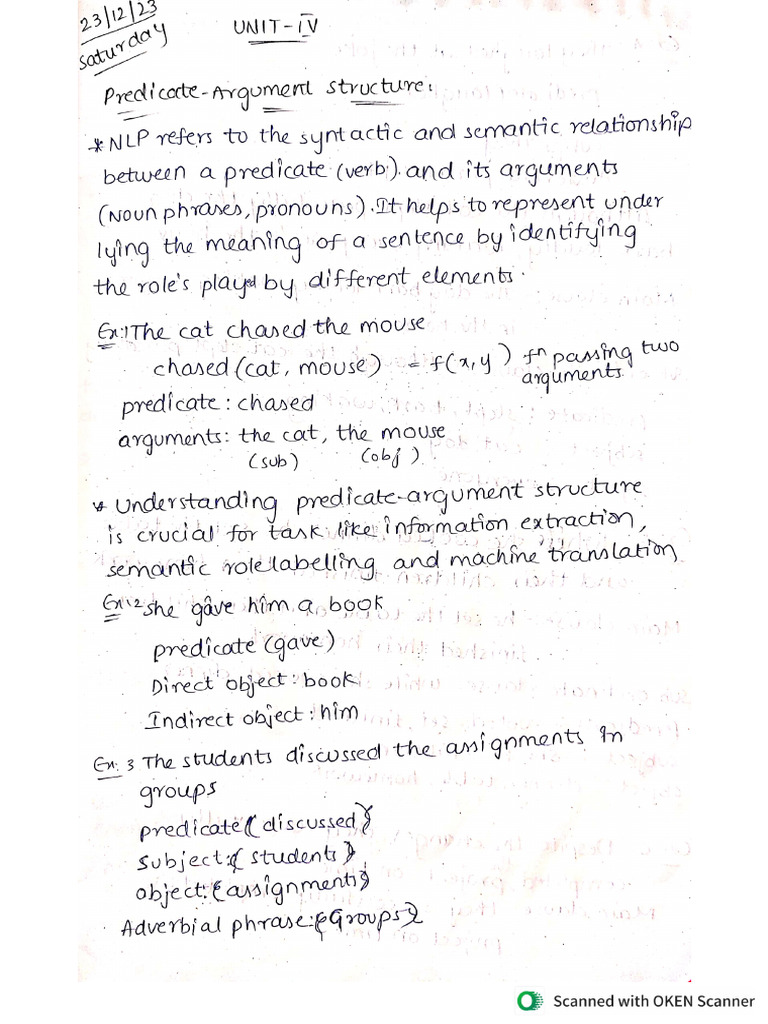 23/12/23
Saturday
UNIT-IV
Predicate-Argument structure:
* NLP refers to the syntactic and semantic relationship
between a predicate (verb). and its arguments
(Noun phrases, pronouns). It helps to represent under
lying the meaning of a sentence by identifying
the role's played by different elements.
Ex:1 The cat chased the mouse
chased (cat, mouse) = f(x,y) fn passing two
arguments.
predicate: chased
arguments: the cat, the mouse
(sub) (obj)
* Understanding predicate-argument structure
is crucial for task like information extraction,
semantic role labelling and machine translation
Ex:2 she gave him a book
predicate (gave)
Direct object: book
Indirect object: him
Ex: 3 The students discussed the assignments in
groups
predicate{discussed}
Subject:{students}
object:{assignments}
Adverbial phrase:{Groups}
Scanned with OKEN Scanner